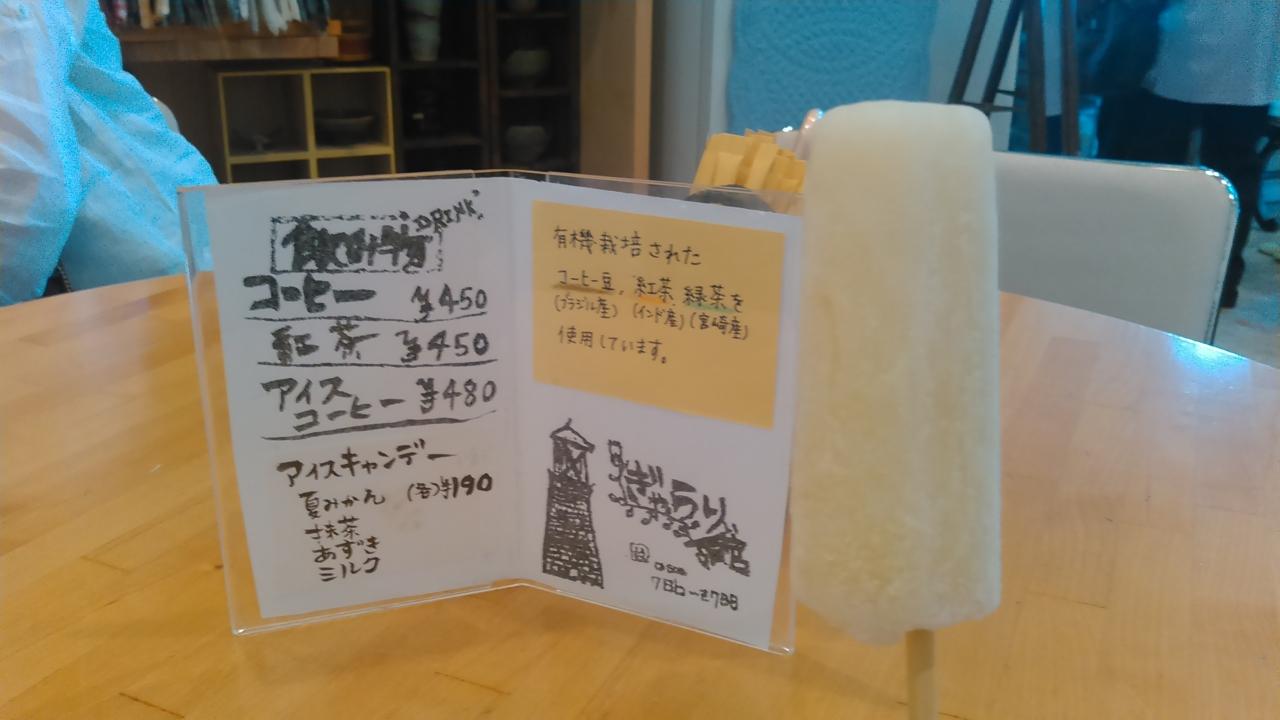 飲み物
DRINK
コーヒー ¥450
紅茶 ¥450
アイス
コーヒー ¥480
アイスキャンデー
夏みかん (各)¥190
抹茶
あずき
ミルク
有機栽培された
コーヒー豆、紅茶、緑茶を
(ブラジル産) (インド産) (宮崎産)
使用しています。
ぎゃらり